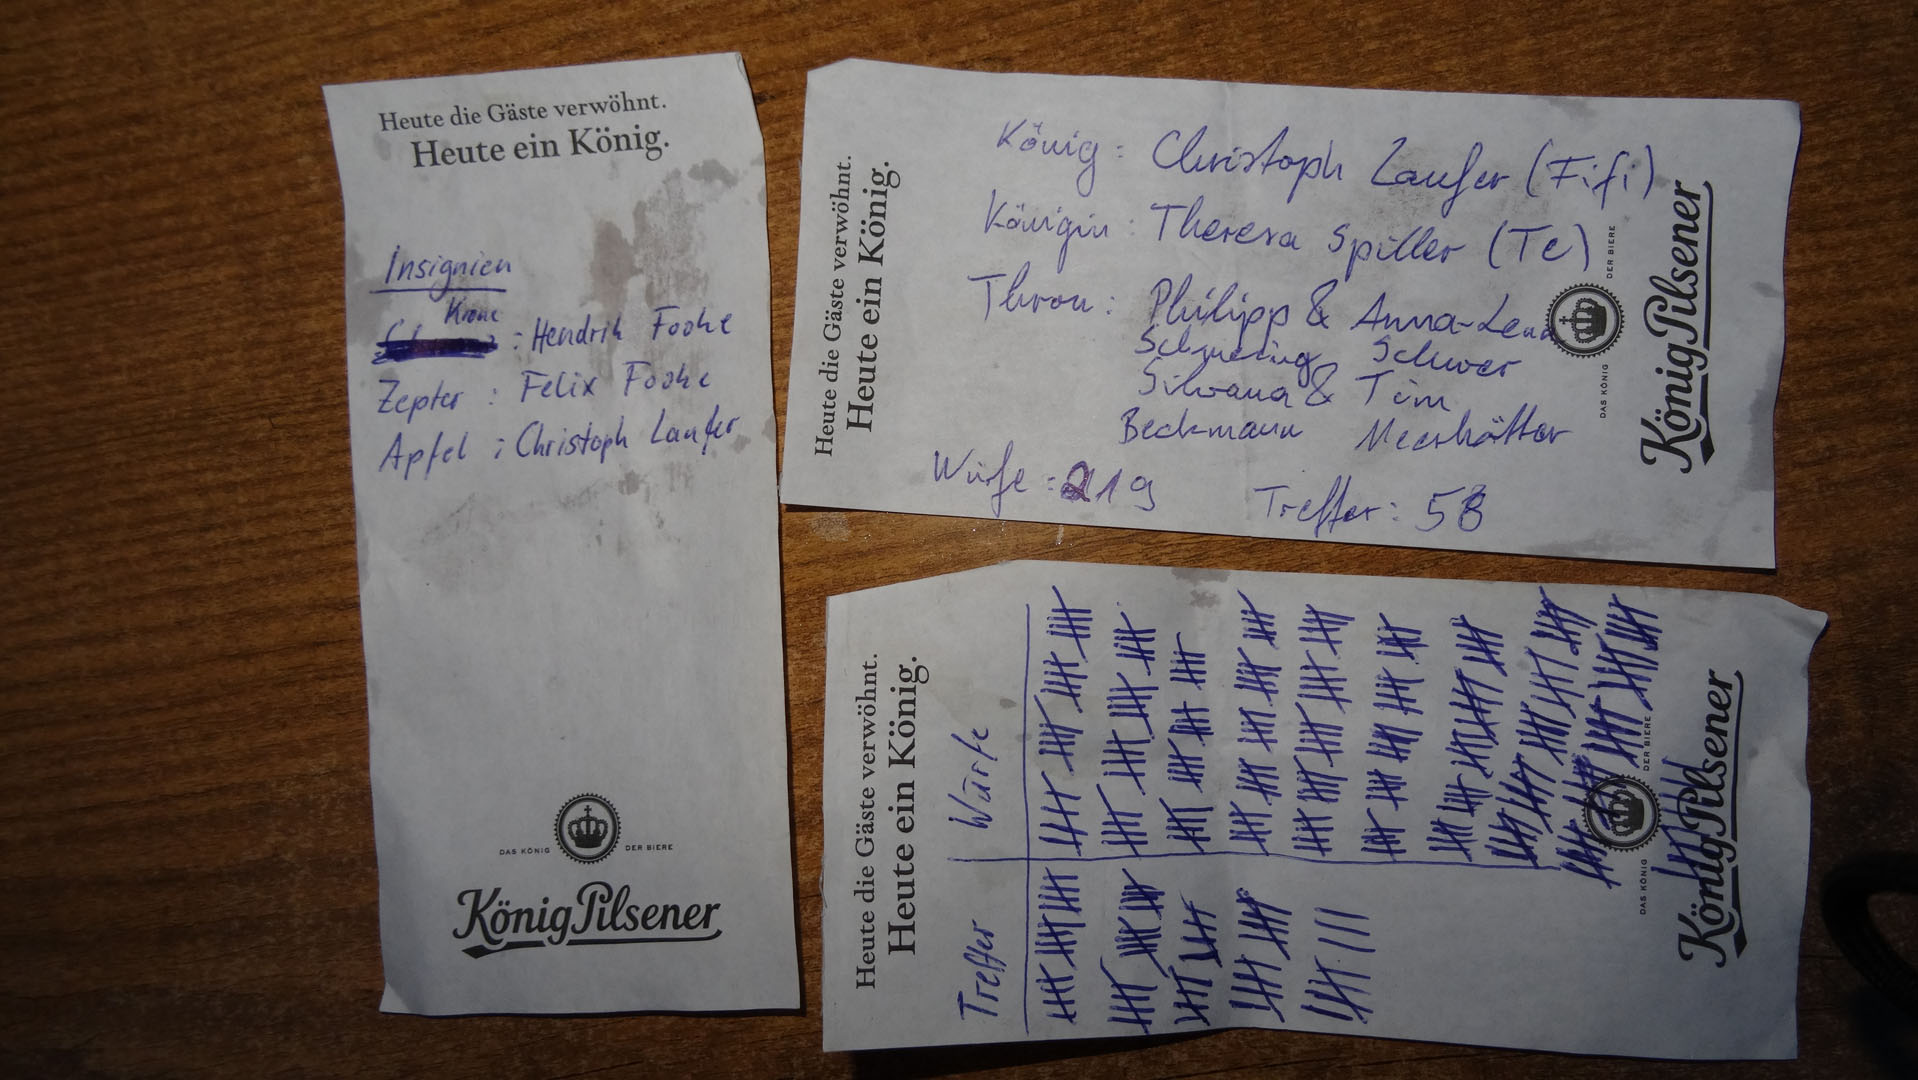 Heute die Gäste verwöhnt.
Heute ein König.
Insignien
Krone : Hendrik Fooke
Zepter : Felix Fooke
Apfel : Christoph Laufer
DAS KÖNIG DER BIERE
König Pilsener
Heute die Gäste verwöhnt.
Heute ein König.
König : Christoph Laufer (Fifi)
Königin : Theresa Spiller (Te)
Thron : Philipp & Anna-Lena
Schmering Schwer
Silvana & Tim
Beckmann Meerkötter
Würfe : 219 Treffer : 58
DAS KÖNIG DER BIERE
König Pilsener
Heute die Gäste verwöhnt.
Heute ein König.
Treffer | Würfe
DAS KÖNIG DER BIERE
König Pilsener